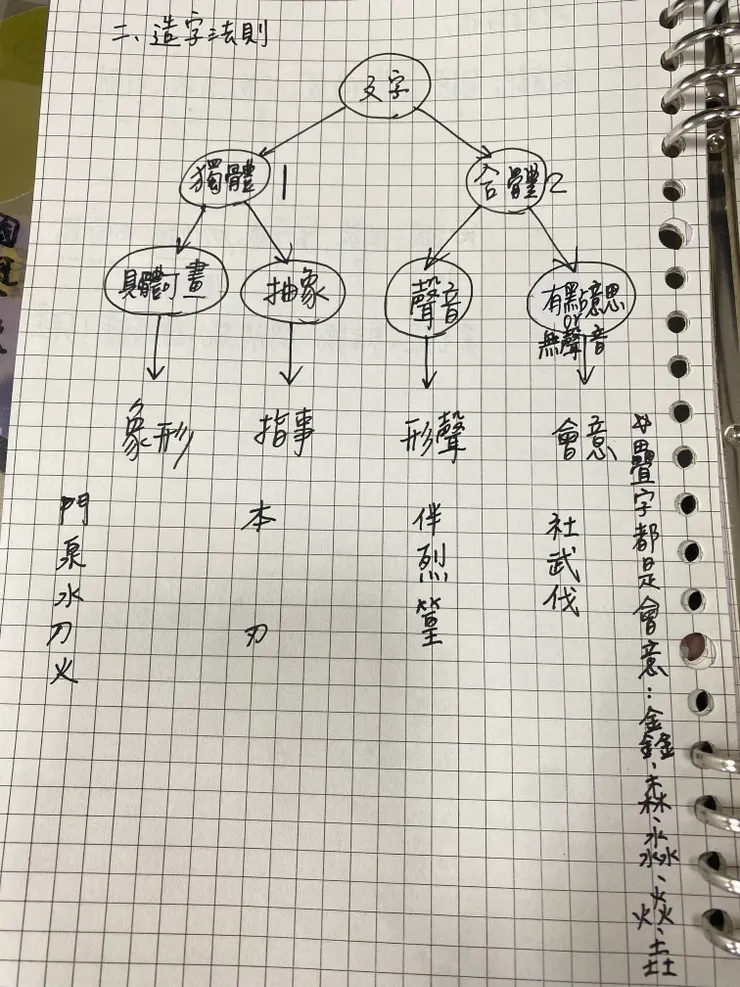 二、造字法則
文字
獨體 1
合體 2
具體可畫
抽象
聲音
有點意思
or
無聲音
象形
指事
形聲
會意
門
泉
水
刀
火
本
刃
伴
烈
筐
社
武
伐
疊字都是會意：鑫、森、淼、焱、垚